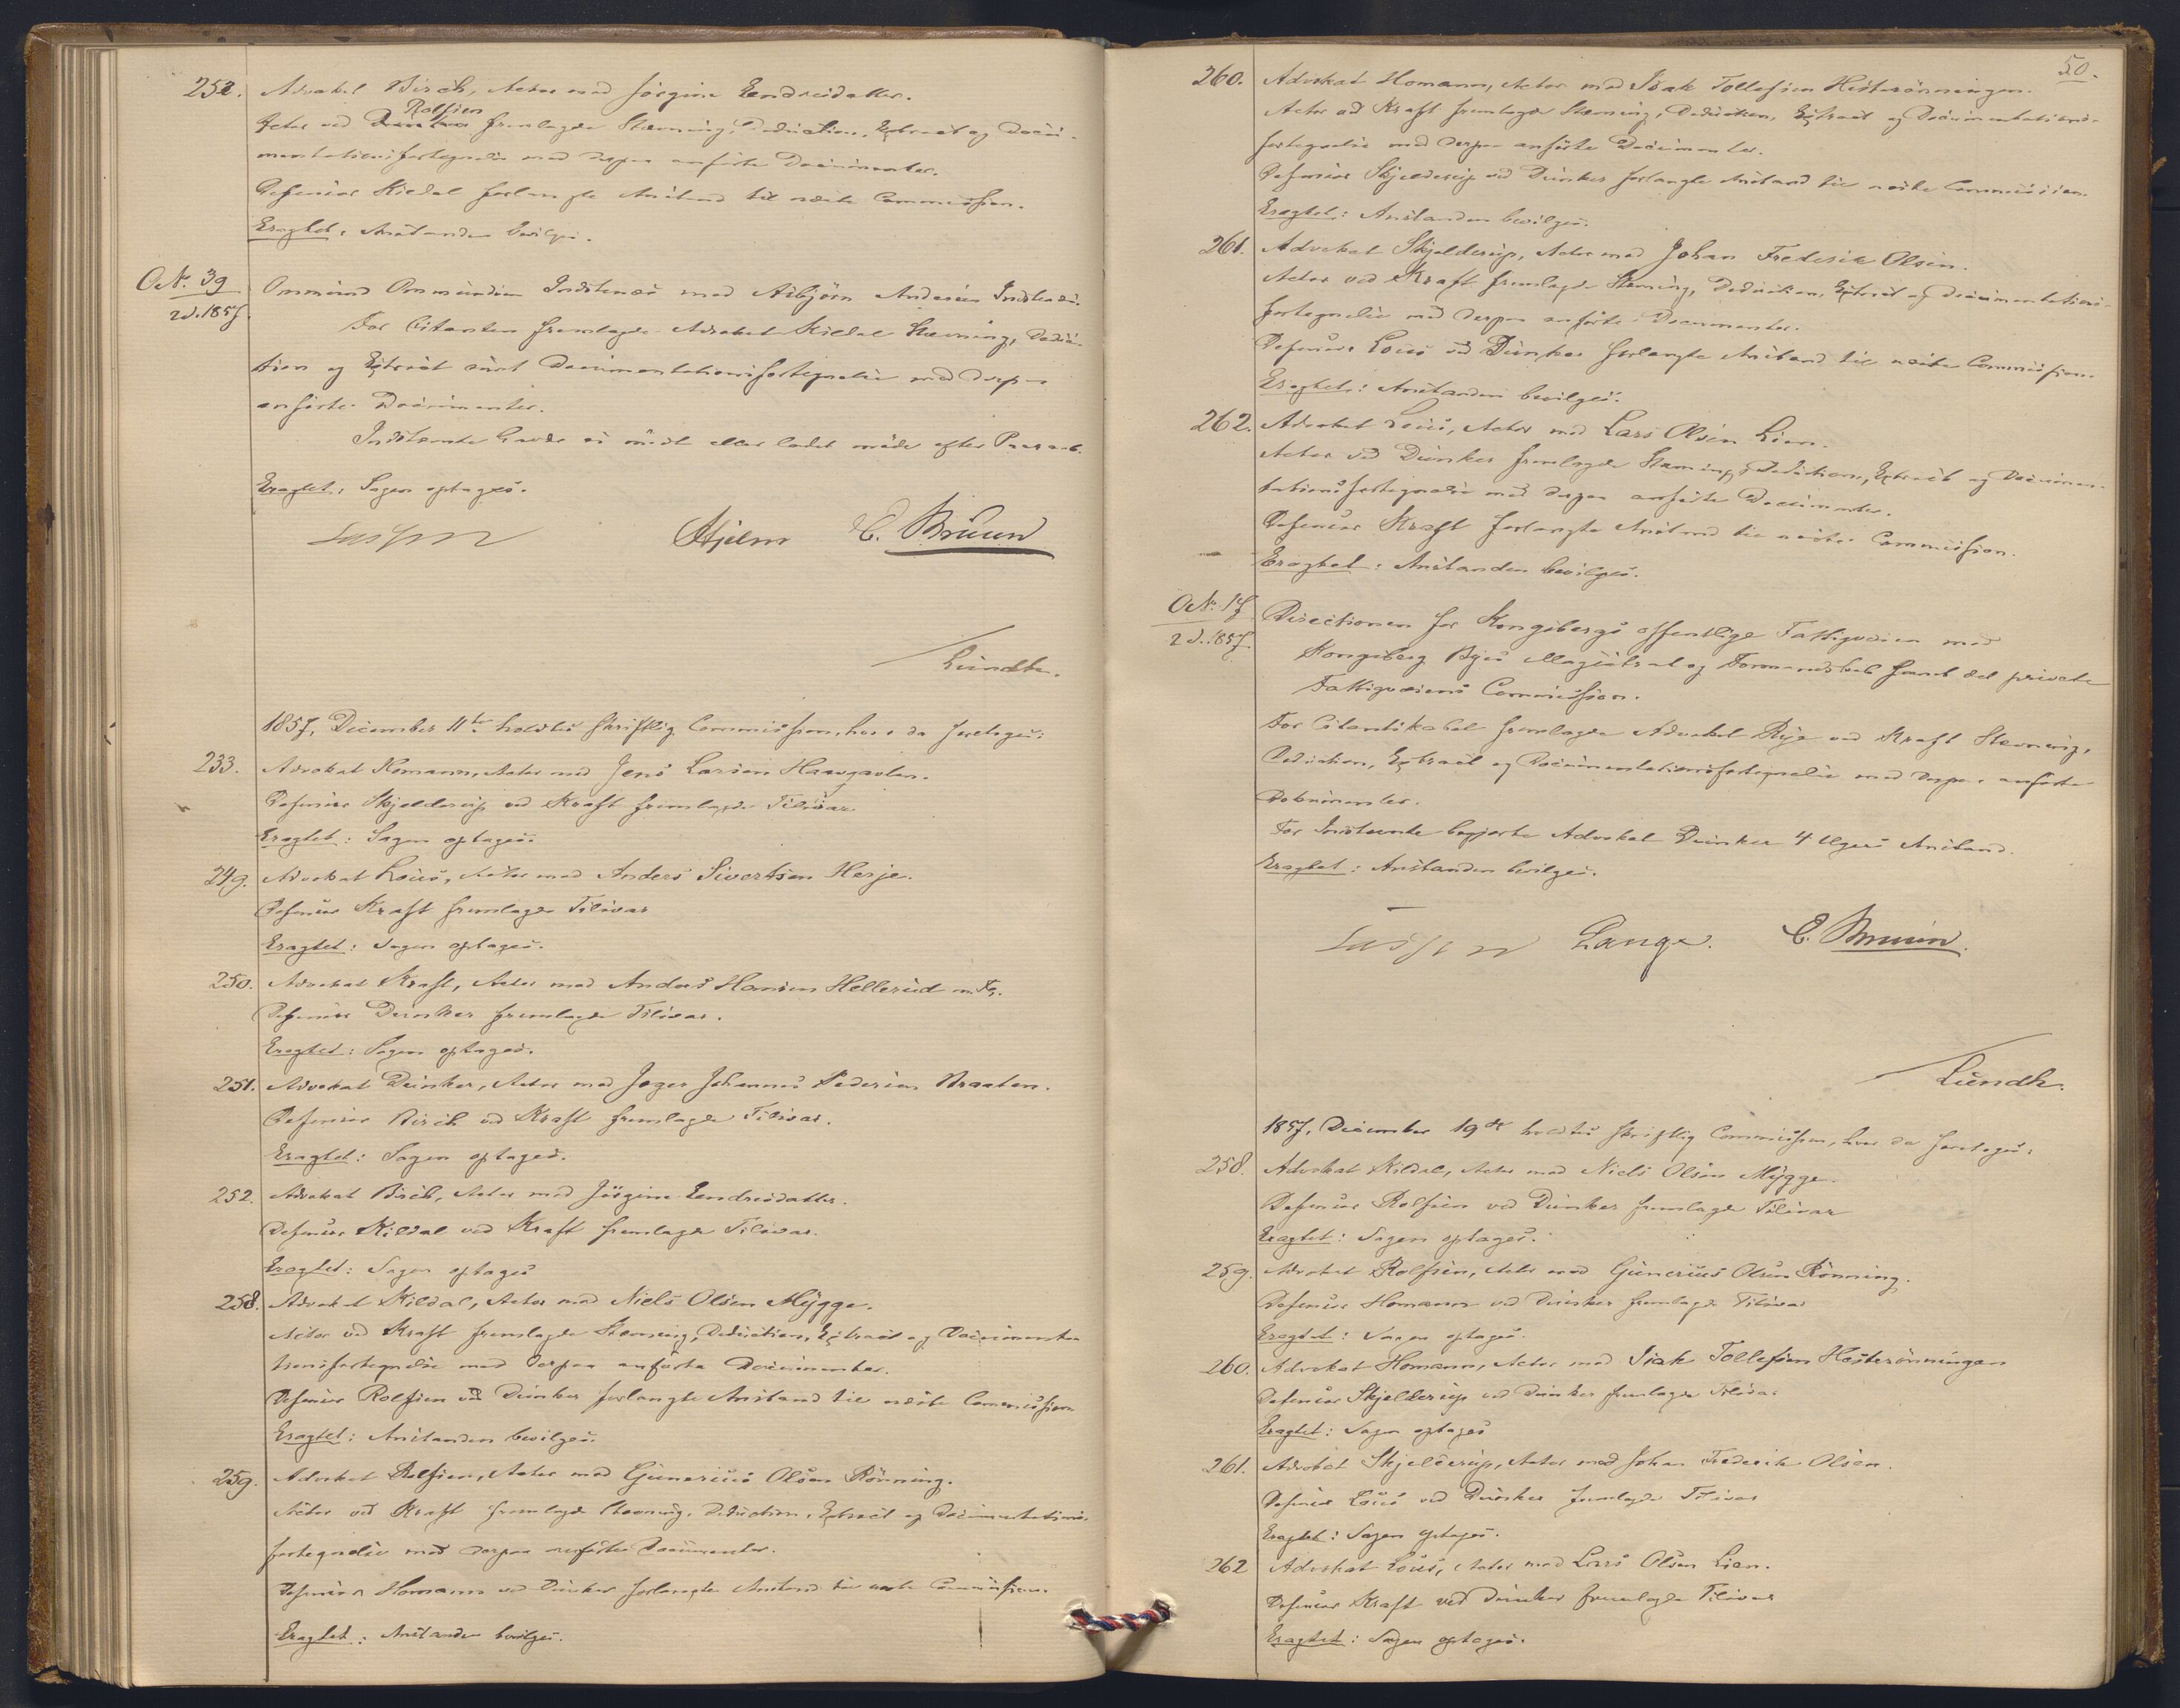 252. Advokat Birch, Actor mod Jörgine Endreisdatter.
Rolfsen
Actor ved Dunker fremlagde Stævning, Deduction, Extract og Docu-
mentationsfortegnelse med derpaa anförte Documenter.
Defensor Kildal forlangte Anstand til næste Commission.
Eragtet: Anstanden bevilges.
O. No 39
2d. 1857.
Ommund Ommundsen Indstenæs mod Asbjörn Andersen Indstenæs.
For Citanten fremlagde Advokat Kildal Stævning, Deduc-
tion og Extract samt Documentationsfortegnelse med derpaa
anförte Documenter.
Indstevnte havde ei mödt eller ladet möde efter Paaraab.
Eragtet: Sagen optages.
Lasson Hjelm C. Bruun
Lundh.
1857, December 11te holdtes skriftlig Commission, hvor da foretoges:
233. Advokat Homann, Actor mod Jens Larsen Haavgaolen.
Defensor Skjelderup ved Kraft fremlagde Tilsvar
Eragtet: Sagen optages.
249. Advokat Lous, Actor mod Anders Sivertsen Herje.
Defensor Kraft fremlagde Tilsvar
Eragtet: Sagen optages.
250. Advokat Kraft, Actor mod Anders Hansen Hellerud m. Fl.
Defensor Dunker fremlagde Tilsvar.
Eragtet: Sagen optages.
251. Advokat Dunker, Actor mod Jæger Johannes Pedersen Braaten.
Defensor Birch ved Kraft fremlagde Tilsvar.
Eragtet: Sagen optages.
252. Advokat Birch, Actor mod Jörgine Endreisdatter.
Defensor Kildal ved Kraft fremlagde Tilsvar.
Eragtet: Sagen optages
258. Advokat Kildal, Actor mod Niels Olsen Mygge.
Actor ved Kraft fremlagde Stævning, Deduction, Extract og Documenta-
tionsfortegnelse med derpaa anförte Documenter.
Defensor Rolfsen ved Dunker forlangte Anstand til næste Commission
Eragtet: Anstanden bevilges.
259. Advokat Rolfsen, Actor mod Gunerius Olsen Rönning.
Actor ved Kraft fremlagde Stævning, Deduction, Extract og Documentations-
fortegnelse med derpaa anförte Documenter.
Defensor Homann ved Dunker forlangte Anstand til næste Commission.
Eragtet: Anstanden bevilges.
50.
260. Advokat Homann, Actor mod Isak Tollefsen Hesterönningen.
Actor ved Kraft fremlagde Stævning, Deduction, Extract og Documentations-
fortegnelse med derpaa anförte Documenter.
Defensor Skjelderup ved Dunker forlangte Anstand til næste Commission.
Eragtet: Anstanden bevilges.
261. Advokat Skjelderup, Actor mod Johan Frederik Olsen.
Actor ved Kraft fremlagde Stævning, Deduction, Extract og Documentations-
fortegnelse med derpaa anförte Documenter.
Defensor Lous ved Dunker forlangte Anstand til næste Commission.
Eragtet: Anstanden bevilges.
262. Advokat Lous, Actor mod Lars Olsen Lien.
Actor ved Dunker fremlagde Stævning, Deduction, Extract og Documen-
tationsfortegnelse med derpaa anförte Documenter.
Defensor Kraft forlangte Anstand til næste Commission.
Eragtet: Anstanden bevilges.
O. No 17
2d. 1857.
Directionen for Kongsbergs offentlige Fattigvæsen mod
Kongsberg Byes Magistrat og Formandskab samt det private
Fattigvæsens Commission.
For Citantskabet fremlagde Advokat Rye ved Kraft Stævning,
Deduction, Extract og Documentationsfortegnelse med derpaa anförte
Dokumenter.
For Indstevnte begjærte Advokat Dunker 4 Ugers Anstand.
Eragtet: Anstanden bevilges.
Lasson Lange. C. Bruun.
Lundh.
1857, December 19de holdtes skriftlig Commission, hvor da foretoges:
258. Advokat Kildal, Actor mod Niels Olsen Mygge.
Defensor Rolfsen ved Dunker fremlagde Tilsvar
Eragtet: Sagen optages.
259. Advokat Rolfsen, Actor mod Gunerius Olsen Rönning.
Defensor Homann ved Dunker fremlagde Tilsvar
Eragtet: Sagen optages.
260. Advokat Homann, Actor mod Isak Tollefsen Hesterönningen
Defensor Skjelderup ved Dunker fremlagde Tilsvar
Eragtet: Sagen optages
261. Advokat Skjelderup, Actor mod Johan Frederik Olsen.
Defensor Lous ved Dunker fremlagde Tilsvar
Eragtet: Sagen optages.
262 Advokat Lous, Actor mod Lars Olsen Lien.
Defensor Kraft ved Dunker fremlagde Tilsvar
Eragtet: Sagen optages.